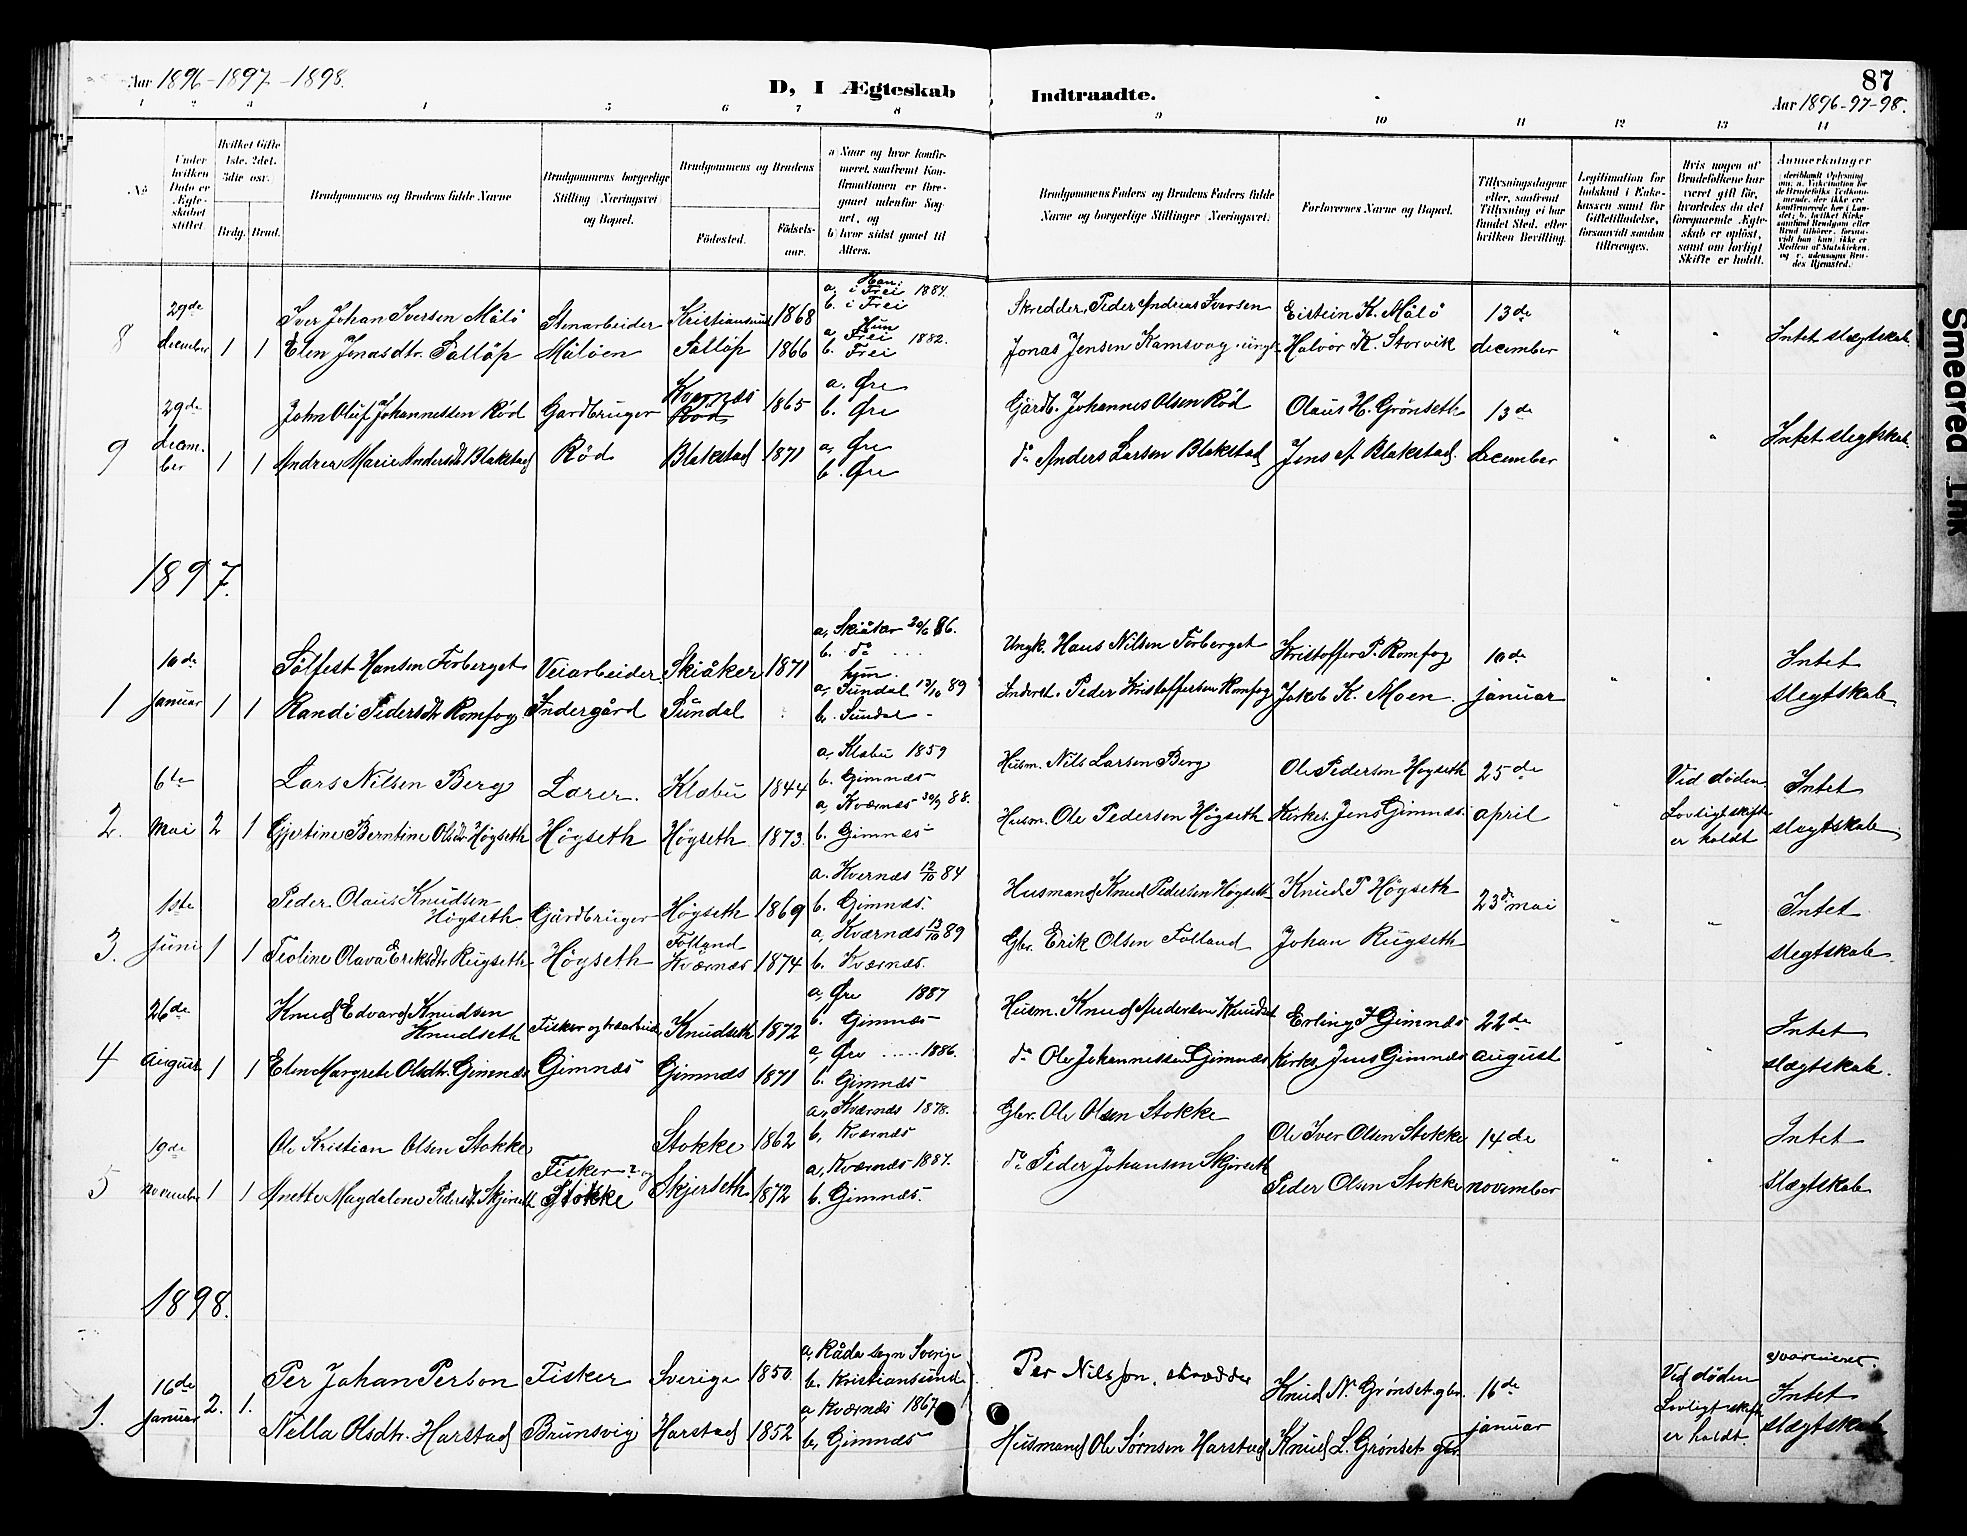 Aar 1896-1897-1898.
D, I Ægteskab Indtraadte.
87
Aar 1896-97-98.
1 2 3 4 5 6 7 8 9 10 11 12 13 14
No
Under hvilken Dato er Ægteskabet stiftet.
Hvilket Gifte 1ste. 2det. 3die osv.
Brdg. Brud.
Brudgommens og Brudens fulde Navne
Brudgommens borgerlige Stilling (Næringsvei) og Bopæl.
Brudgommens og Brudens
Födested.
Födselsaar.
a) Naar og hvor konfirmeret, saafremt Konfirmationen er foregaaet udenfor Sognet, og
b) hvor sidst gaaet til Alters.
Brudgommens Faders og Brudens Faders fulde Navne og borgerlige Stillinger (Næringsvei).
Forlovernes Navne og Bopæl.
Tillysningsdagene eller, saafremt Tillysning ei har fundet Sted, efter hvilken Bevilling.
Legitimation for Indskud i Enkekassen samt for Giftetilladelse, forsaavidt saadan tiltrænges.
Hvis nogen af Brudefolkene har været gift før, hvorledes da det foregaaende Ægteskab er opløst, samt om lovligt Skifte er holdt.
Anmerkninger
8
29de december
1 1
Iver Johan Iversen Målö
Elen Jonasdtr. Fallöp
Stenarbeider
Målöen
Kristiansund 1868
Fallöp 1866
Han
a, i Frei 1884.
b. i Frei
Hun
a, Frei 1882.
b. Frei
Skredder, Peder Andreas Iversen
Jonas Jensen Kamsvag
Eistein K. Målö
Halvor K. Storvik
13de december
" "
Intet slægtskab.
9
29de december
1 1
John Oluf Johannessen Röd
Andrea Marie Andersdtr Blakstad
Gardbruger
Röd
Kvernæs
Röd
1865
Blakstad 1871
a. Øre
b. Øre
a, Øre
b. Øre
Gårdb. Johannes Olsen Röd
do Anders Larsen Blakstad
Olaus H. Grönseth
Jens A Blakstad.
13de december
" "
Intet slegtskab.
1897.
1
10de Januar
1 1
Sölfest Hansen Forberget
Randi Pedersdtr Romfog
Veiarbeider
Indergård
Skiåker 1871
Sundal
a, Skiåker 20/6 86.
b. do
hun.
a, Sundal 13/10 89
b. Sundal -
Ungk. Hans Nilsen Forberget
Inderst. Peder Kristoffersen Romfog
Kristoffer P. Romfog
Jakob K. Moen.
10de januar
" "
Intet slegtskab.
2.
6te Mai
2 1
Lars Nilsen Berg
Gjertine Berntine Olsdtr Högseth
Lærer.
Högseth
Klæbu 1844
Högseth 1873.
a, Klæbu 1859
b. Gimnæs
a, Kværnæs 30/9 88.
b. Gimnæs
Husm. Nils Larsen Berg
Husm. Ole Pedersen Högseth
Ole Pedersen Högseth
Kirkes. Jens Gimnæs.
25de april
"
Ved döden
Lovligt skifte er holdt
Intet slægtskab.
3.
1ste Juni
1 1
Peder Olaus Knudsen Högseth
Teoline Olava Eriksdtr Rugseth
Gårdbruger
Högseth
Högseth 1869
Folland
Kværnæs 1874
a. Kvernæs 12/10 84
b. Gimnæs.
a, Kværnæs 13/10 89
b. Kværnæs.
Husmand Knud Pedersen Högseth
Gbr. Erik Olsen Folland
Knud P Högseth
Johan Rugseth
23de mai
" "
Intet slegtskab.
4
26de August
1 1
Knud Edvard Knudsen Knudseth
Elen Margrete Olsdtr. Gimnæs
Fisker og træarbeider
Gimnæs
Knudseth 1872
Gimnæs 1871
a, Øre 1887
b. Gimnæs
a, Øre ..... 1886.
b. Gimnæs
Husm. Knud Andersen Knudset
do Ole Johannessen Gimnæs
Erling J Gimnæs
Kirkes. Jens Gimnæs
22de august
" "
Intet slægtskab.
5
19de november
1 1
Ole Kristian Olsen Stokke
Anette Magdalene Pedersdtr Skjerseth
Fisker
Stokke
Stokke 1862
Skjerseth 1872
a, Kværnæs 1878.
b, Kværnæs
a, Kværnæs 1887.
b. Gimnæs.
Gbr. Ole Olsen Stokke
do Peder Johansen Skjerseth
Ole Iver Olsen Stokke
Peder Olsen Stokke
14de november
" "
Intet slægtskab
1898.
1.
16de Januar
2. 1.
Per Johan Person
Nilla Olsdtr. Harstad
Fisker
Brunsvig
Sverige 1850.
Harstad 1852
a, Råda sogn Sverige
b. Kristiansund
a Kværnæs 1867
b, Gimnæs
Per Nilsson, skrædder
Husmand Ole Sörnsen Harstad
Knud N. Grönset gbr.
Knud L. Grönset gbr.
16de januar
Ved döden
Lovligt skifte er holdt.
Intet slægtskab
Smeared Ink